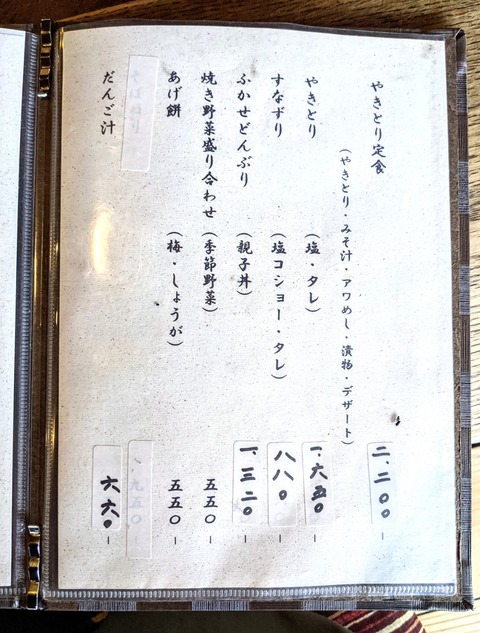 やきとり定食 二、二〇〇ー
（やきとり・みそ汁・アワめし・漬物・デザート）
やきとり （塩・タレ） 一、六五〇ー
すなずり （塩コショー・タレ） 八八〇ー
ふかせどんぶり （親子丼） 一、三二〇ー
焼き野菜盛り合わせ （季節野菜） 五五〇ー
あげ餅 （梅・しょうが） 五五〇ー
一、九五〇ー
だんご汁 六六〇ー